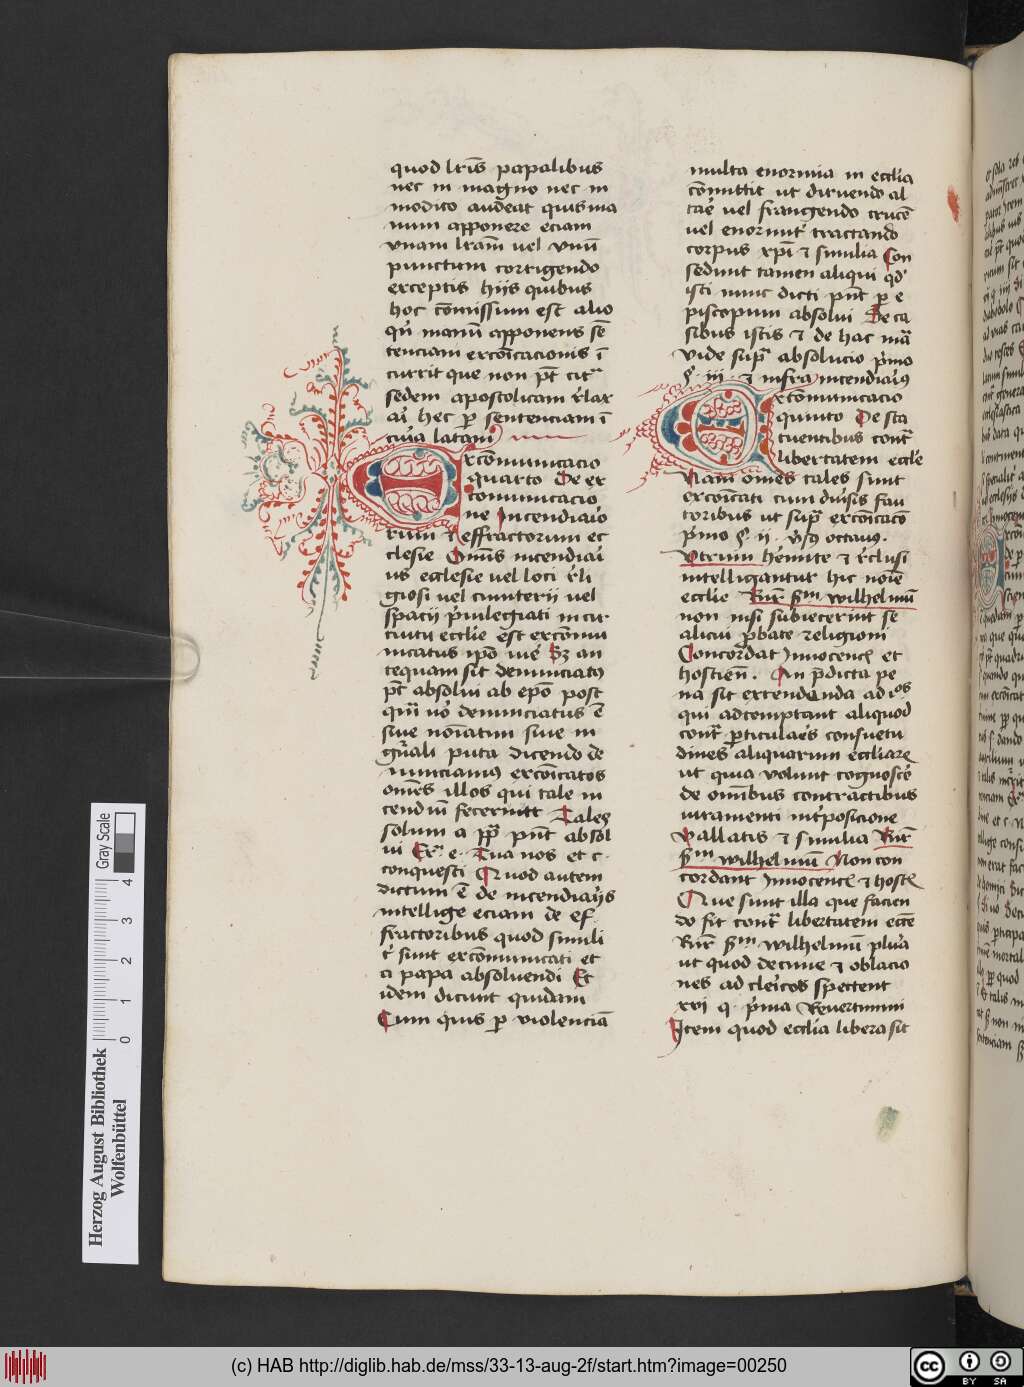 quod lr̄is papalibus
nec in magno nec in
modico audeat quis ma
num apponere eciam
vnam lr̄am vel vnū
punctum corrigendo
exceptis hijs quibus
hoc cōmissum est alio
qn̄ manū apponens sē
tenciam excōīcacionis ī
currit que non pt̄ citª
sedem apostolicam rlax
ari hec p sentenciam ī
curia latam
Excōmunicacio
quarto De ex
comunicacio
ne Incendiario
rum ⁊ effractorum ec
clesie Omīs incendiari
us ecclesie vel loci rli
giosi vel cimiterii vel
spacij priuilegiati in cir
cuitu ecclie est excōmu
nicatus ipō iure Sz an
tequam sit denunciatus
pt̄ absolui ab epō post
qm̄ vo denunciatus ē
siue noīatim siue in
gn̄ali puta dicendo de
nunciamus excōīcatos
omēs illos qui tale in
cendiū fecerintt Tales
solum a pp̄ pn̄t absol
ui Exª e. Tua nos et c.
conquesti Quod autem
dictum ē de incendiarijs
intellige eciam de ef
fractoribus quod simili
tr sunt excōmunicati et
a papa absoluendi Et
idem dicunt quidam
Cum quis p violenciā
multa enormia in ecclia
cōmittit ut diruendo al
tare vel frangendo crucē
vel enormit tractando
corpus xpī ⁊ similia Con
sedunt tamen aliqui qd
isti nunc dicti pn̄t p e
piscopum absolui De ca
sibus istis ⁊ de hac mrā
vide supª absolucio pmo
§ iii ⁊ infra incendiarius
Excōmunicacio
quinto De sta
tuentibus contª
libertatem eccle
Nam omēs tales sunt
excōīcati cum diuisis fau
toribus ut supª excōīcacō
pmo § ii. vsq octauus.
Vtrum hemite ⁊ rclusi
intelligantur hic noīe
ecclie Rnr̄ scdm wilhelmū
non nisi subiecerint se
alicui pbate religioni
Concordat Innocenc et
hostien̄. An pdicta pe
na sit extendenda ad ios
qui adtemptant aliquod
contª pticulares consuetu
dines aliquarum eccliare
ut quia volunt cognosce
de omībus contractibus
iuramenti int̄posicione
vallatis ⁊ similia Rnr̄
scdm wilhelmū Non con
cordant Innocenc ⁊ host
Que sunt illa que facien
do fit contª libertatem ecce
Rnr̄ scdm wilhelmū plura
ut quod decime ⁊ oblacio
nes ad clericos spectent
xvi q. prima Reuertimini
Item quod ecclia libera sit
Herzog August Bibliothek
Wolfenbüttel
Gray Scale
0 1 2 3 4
(c) HAB http://diglib.hab.de/mss/33-13-aug-2f/start.htm?image=00250
cc BY SA